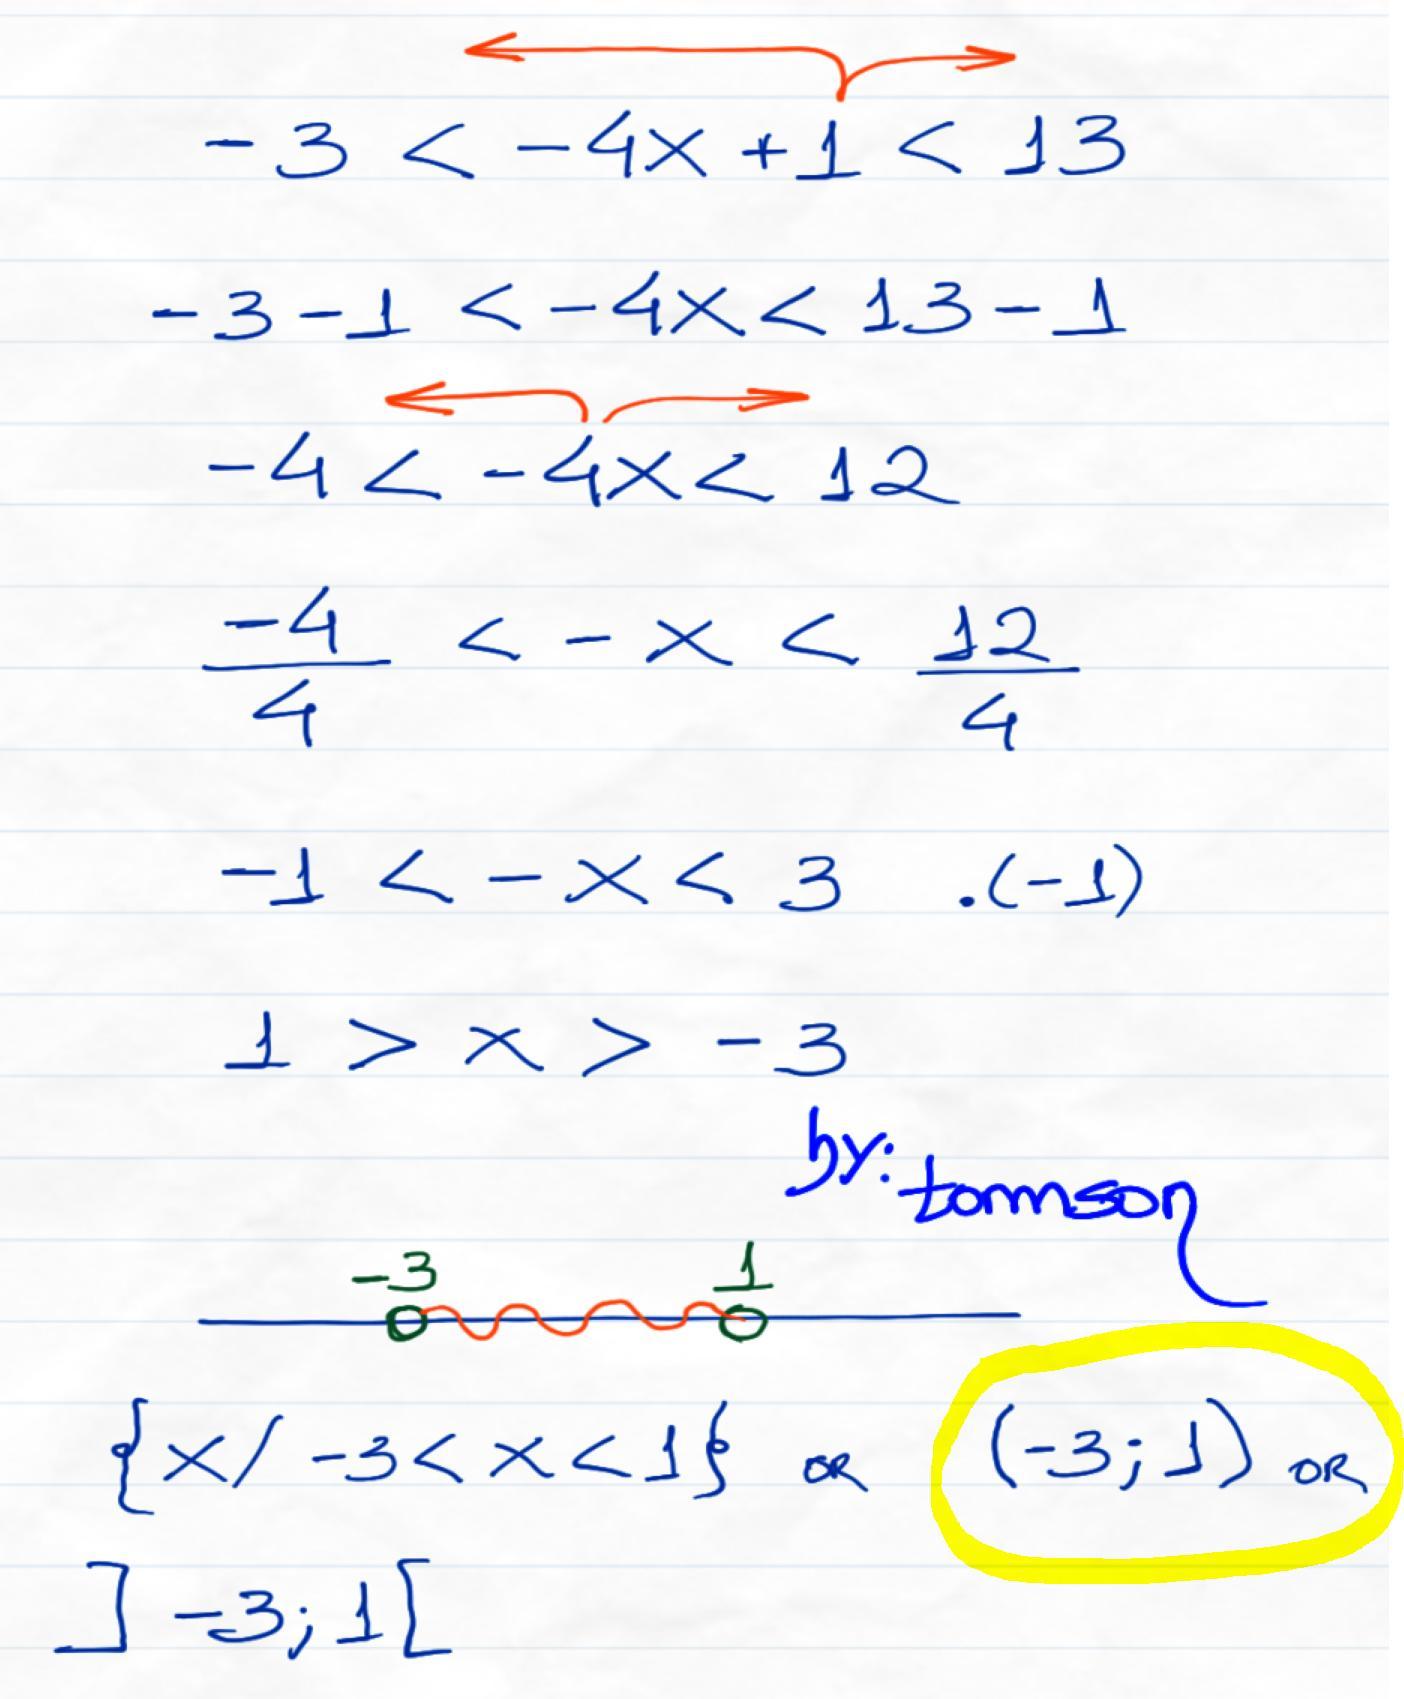 -3 < -4x + 1 < 13
-3 - 1 < -4x < 13 - 1
-4 < -4x < 12
-4/4 < -x < 12/4
-1 < -x < 3 .(-1)
1 > x > -3
by: tomnson
-3 1
{x/ -3 < x < 1} OR (-3; 1) OR
]-3; 1[